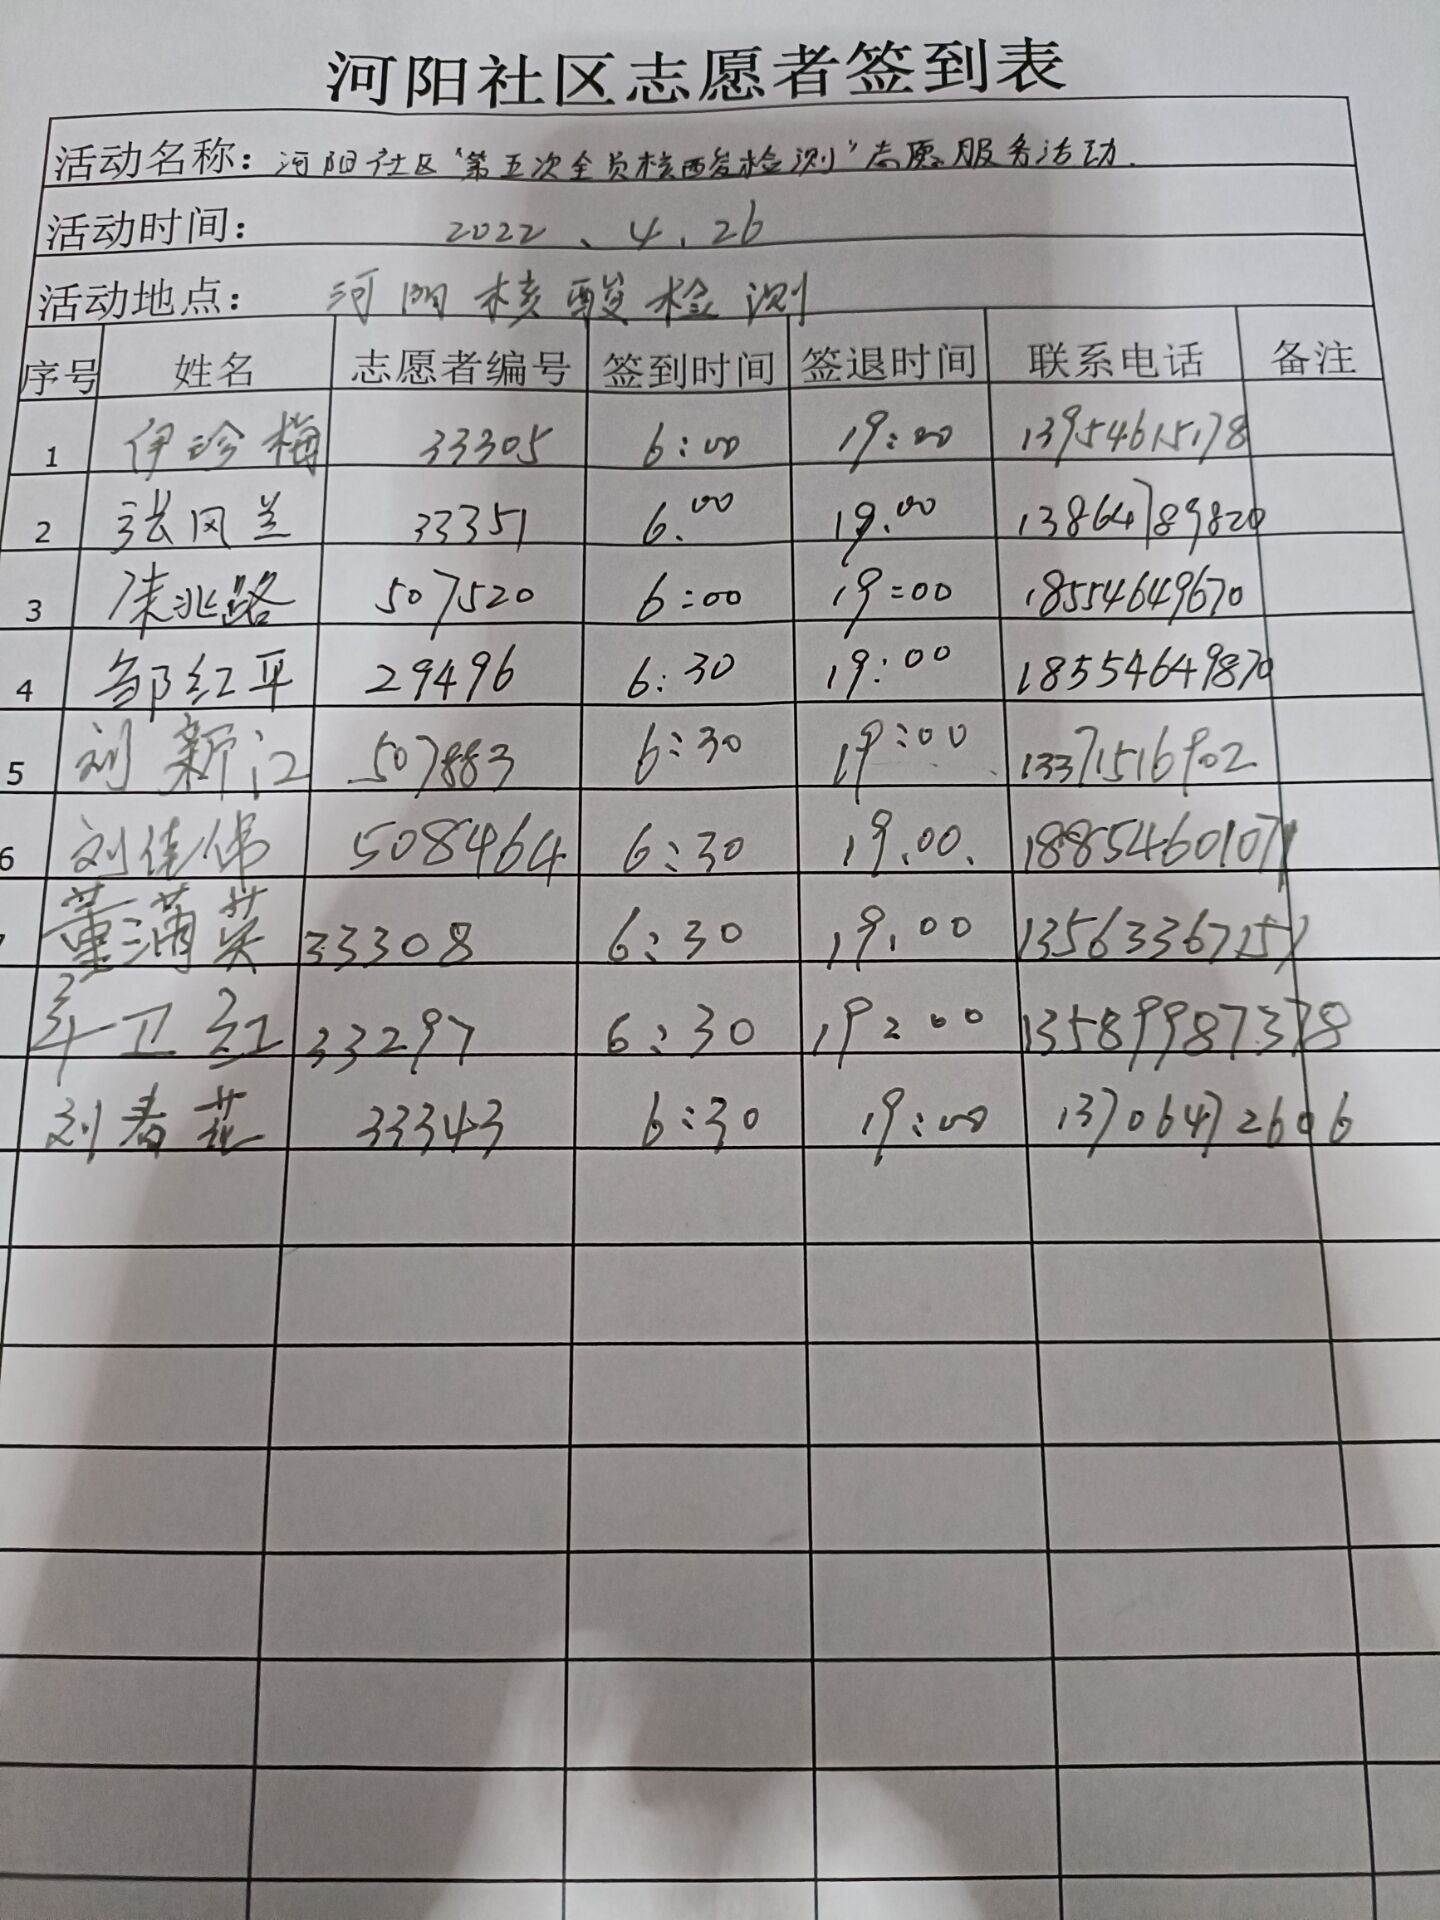 河阳社区志愿者签到表
活动名称：河阳社区“第五次全员核酸检测”志愿服务活动.
活动时间： 2022、4.26
活动地点： 河阳核酸检测
序号 姓名 志愿者编号 签到时间 签退时间 联系电话 备注
1 伊珍梅 33305 6:00 19:00 13954615178
2 张风兰 33351 6.00 19.00 13864789820
3 陈兆路 507520 6:00 19:00 18554649670
4 邹红平 29496 6:30 19:00 18554649870
5 刘新江 507883 6:30 19:00 13371516902
6 刘佳伟 508464 6:30 19.00. 18854601071
董满英 33308 6:30 19.00 13563367151
卫红 33297 6:30 19:00 13589987378
刘春花 33343 6:30 19:00 13706472606